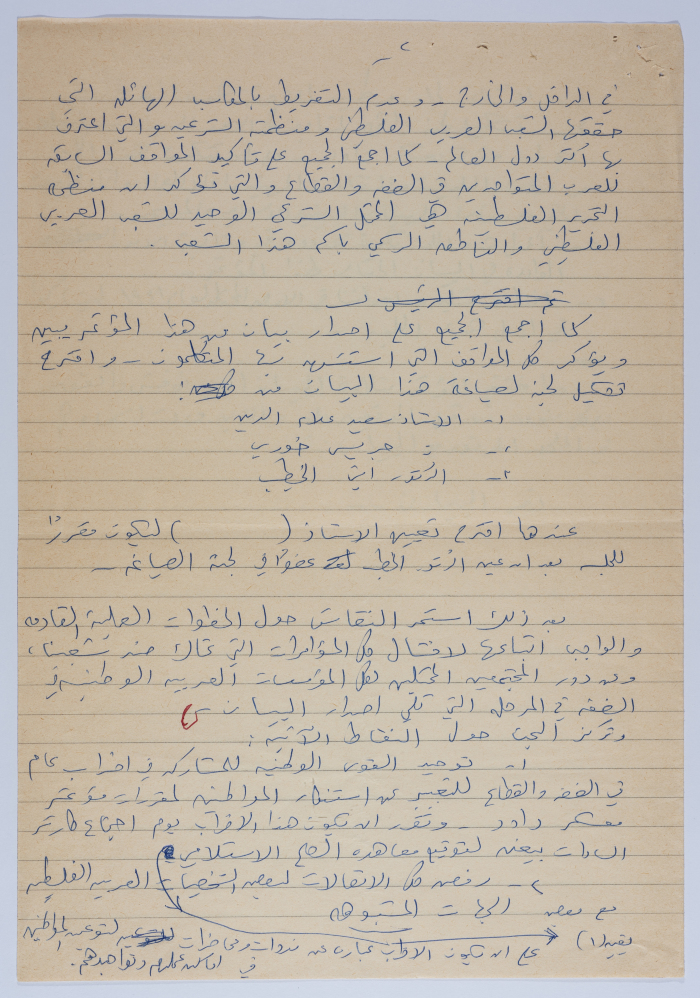 - ٢ -
في الداخل والخارج - وعدم التفريط بالمكاسب الهائلة التي
حققها الشعب العربي الفلسطيني ومنظمته الشرعية والتي اعترف
بها أكثر دول العالم - كما اجمع الجميع على تأكيد المواقف السابقة
للعرب المتواجدين في الضفة والقطاع والتي تؤكد ان منظمة
التحرير الفلسطينية هي الممثل الشرعي الوحيد للشعب العربي
الفلسطيني والناطقه الرسمي باسم هذا الشعب .
ثم اقترح الرئيس
كما اجمع الجميع على اصدار بيان من هذا المؤتمر يبين
ويؤكد كل المواقف التي استشهد بها المتكلمون - واقترح
تشكيل لجنة لصياغة هذا البيان من :
١- الاستاذ سعيد علاء الدين
٢- : جريس خوري
٣- الدكتور أمين الخطيب
عندها اقترح تعيين الاستاذ ( ) ليكون مقررًا
للجلسه بعد ان عين الدكتور الخطيب عضوًا في لجنة الصياغة -
بعد ذلك استمر النقاش حول الخطوات العملية القادمه
والواجب اتباعها لافشال كل المؤامرات التي تحاك ضد شعبنا ،
وعن دور المجتمعين الممثلين لكل المؤسسات العربيه الوطنية في
الضفه في المرحله التي تلي اصدار البيان
وتركز البحث حول النقاط الآتية :
١- توحيد القوى الوطنيه للمشاركه في اضراب عام
في الضفه والقطاع للتعبير عن استنكار المواطنين لمقررات مؤتمر
معسكر داود - وتقرر ان يكون هذا الاضراب يوم اجتماع كارتر
السادات بيغن لتوقيع معاهده الصلح الاستسلامي
٢- رفض كل الاتصالات لبعض الشخصيات العربيه الفلسطينيه
مع بعض الجهات المشبوهه
بقية (١) على ان يكون الاضراب عباره عن ندوات ومحاضرات لتوعية المواطنين
في اماكن عملهم وتواجدهم .